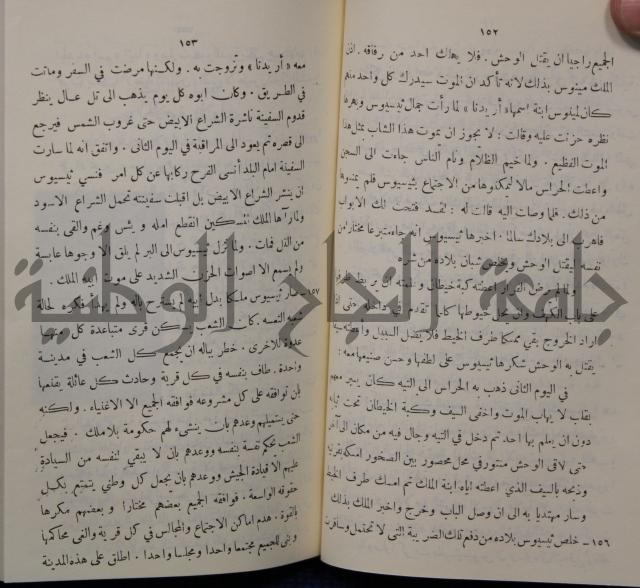 ١٥٢
الجميع راجيا ان يقتل الوحش. فلا يهلك احد من رفاقه. اذن
الملك مينوس بذلك لانه تأكد ان الموت سيدرك كل واحد منهم
كان لمينوس ابنة اسمها « اريدنا » لما رأت جمال ثيسيوس وبهره
نظره حزنت عليه وقالت : لا يجوز ان يموت هذا الشاب بمثل هذا
الموت الفظيع . ولما خيم الظلام ونام الناس جاءت الى السجن
واعطت الحراس مالا ليمكنوها من الاجتماع بثيسيوس فلم يمنعوها
من ذلك . فلما وصلت اليه قالت له : لقد فتحت لك الابواب
فاهرب الى بلادك سالما . اخبرها ثيسيوس انه جاء متبرعا مختارا من
نفسه ليقتل الوحش ويخلص شبان بلاده من شره
ولما لم يرض الفرار اعطته كبة خيطان وعلمته ان يربط طرفها
على باب الكهف وان يحل خيوطها كلما تقدم في داخله حتى اذا
اراد الخروج بقي ممسكا طرف الخيط فلا يضل السبيل واعطته سيفا
يقتل به الوحش شكرها ثيسيوس على لطفها وحسن صنيعها معه :
في اليوم الثاني ذهب به الحراس الى التيه كان يسير معهم
بقلب لا يهاب الموت واخفى السيف وكبة الخيطان تحت ثيابه
دون ان يعلم بها احد ثم دخل في التيه وجال فيه من مكان الى آخر
حتى لاقى الوحش منتور في محل محصور بين الصخور امسكه بقرنيه
وذبحه بالسيف الذي اعطته اياه ابنة الملك ثم امسك طرف الخيط
وسار مهتديا به الى ان وصل الباب وخرج واخبر الملك بذلك
١٥٦ - خلص ثيسيوس بلاده من دفع تلك الضريبة التى لا تحتمل وسافرت
١٥٣
معه « اريدنا » وتزوجت به . ولكنها مرضت في السفر وماتت
في الطريق . وكان ابوه كل يوم يذهب الى تل عال ينظر
قدوم السفينة ناشرة الشراع الابيض حتى غروب الشمس فيرجع
الى قصره ثم يعود الى المراقبة في اليوم الثانى . واتفق انه لما سارت
السفينة امام البلد أنسى الفرح ركابها عن كل امر فنسي ثيسيوس
ان ينشر الشراع الابيض بل اقبلت سفينته تحمل الشراع الاسود
ولما رآها الملك المسكين انقطع امله و يئس وغم والقى بنفسه
من التل فمات . ولما نزل ثيسيوس الى البر لم يلق الا وجوها عابسة
ولم يسمع الا اصوات الحزن الشديد على موت ابيه الملك .
١٥٧ - سار ثيسيوس ملكا بدل ابيه لم يسترح باله ولم يهدأ فكره لحالة
شعبه التعسه . كان الشعب يسكن قرى متباعدة كل منها
عدوة للاخرى . خطر بباله ان يجمع كل الشعب في مدينة
واحدة . طاف بنفسه في كل قرية وحادث كل عائلة يقنعها
بان توافقه على كل مشروعه فوافقه الجميع الا الاغنياء . ولكنه
حتى يستميلهم وعدهم بان ينشىء لهم حكومة بلا ملك . فيجعل
الشعب يحكم نفسه بنفسه ووعدهم بان لا يبقي لنفسه من السيادة
عليهم الا قيادة الجيش ووعدهم بان يجعل كل وطني يتمتع بكل
حقوقه الواسعة . فوافقه الجميع بعضهم مختارا و بعضهم مكرها
بالقوة . هدم اماكن الاجتماع والمجالس في كل قرية والغى محاكمها
وبنى للجميع مجتمعا واحدا ومجلسا واحدا . اطلق على هذه المدينة
جامعة النجاح الوطنية